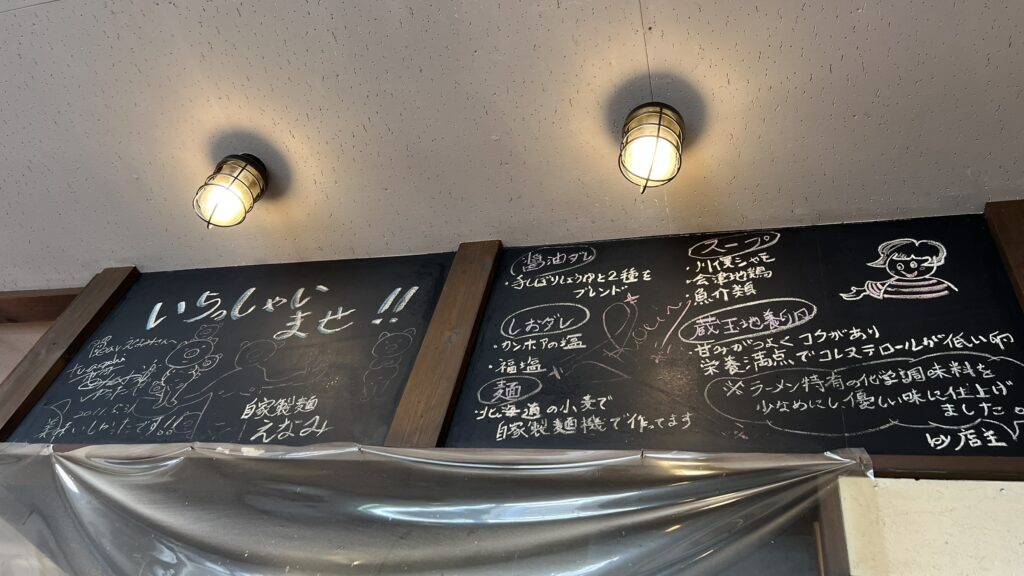 いらっしゃい
ませ!!
2011.5.31
自家製麺
えなみ
醤油ダレ
・手しぼりしょうゆと2種を
ブレンド
しおダレ
・ウンボアの塩
・福塩
麺
・北海道の小麦で
自家製麺機で作ってます
スープ
・川俣シャモ
・会津地鶏
・魚介類
蔵王地養卵
・甘みがつよくコクがあり
栄養満点でコレステロールが低い卵
※ラーメン特有の化学調味料を
少なめにし優しい味に仕上げ
ました。
by 店主